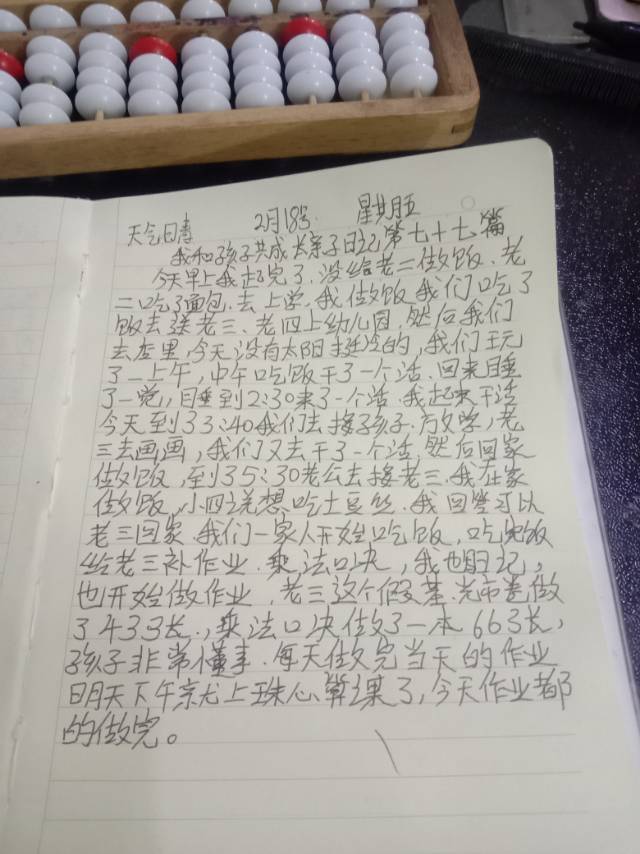 天气晴 2月18号 星期五
我和孩子共成长亲子日记第七十七篇
今天早上我起完了，没给老二做饭，老
二吃了面包，去上学，我做饭我们吃了
饭去送老三、老四上幼儿园，然后我们
去库里，今天没有太阳挺冷的，我们玩
了一上午，中午吃饭干了一个活，回来睡
了一觉，睡到2:30来了一个活，我起来干活
今天到33:40我们去接孩子，放学，老
三去画画，我们又去干了一个活，然后回家
做饭，到35:30老公去接老三，我在家
做饭，小四说想吃土豆丝，我回答可以
老三回家，我们一家人开始吃饭，吃完饭
给老三补作业，乘法口决，我也日记，
也开始做作业，老三这个假基，光布卷做
了433长，乘法口决做了一本663长，
孩子非常懂事，每天做完当天的作业
明天下午就上珠心算课了，今天作业都
的做完。